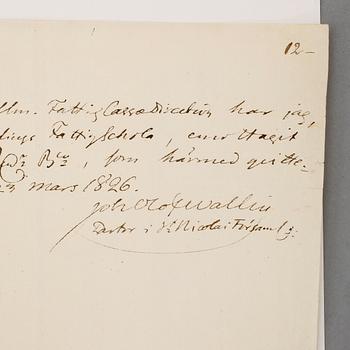 12–
Fattig Casse Direction har jag,
Fattig Schola, emottagit
Bco, som härmed quitte-
mars 1826.
Joh Olof Wallin
Pastor i St Nicolai Församl.g: